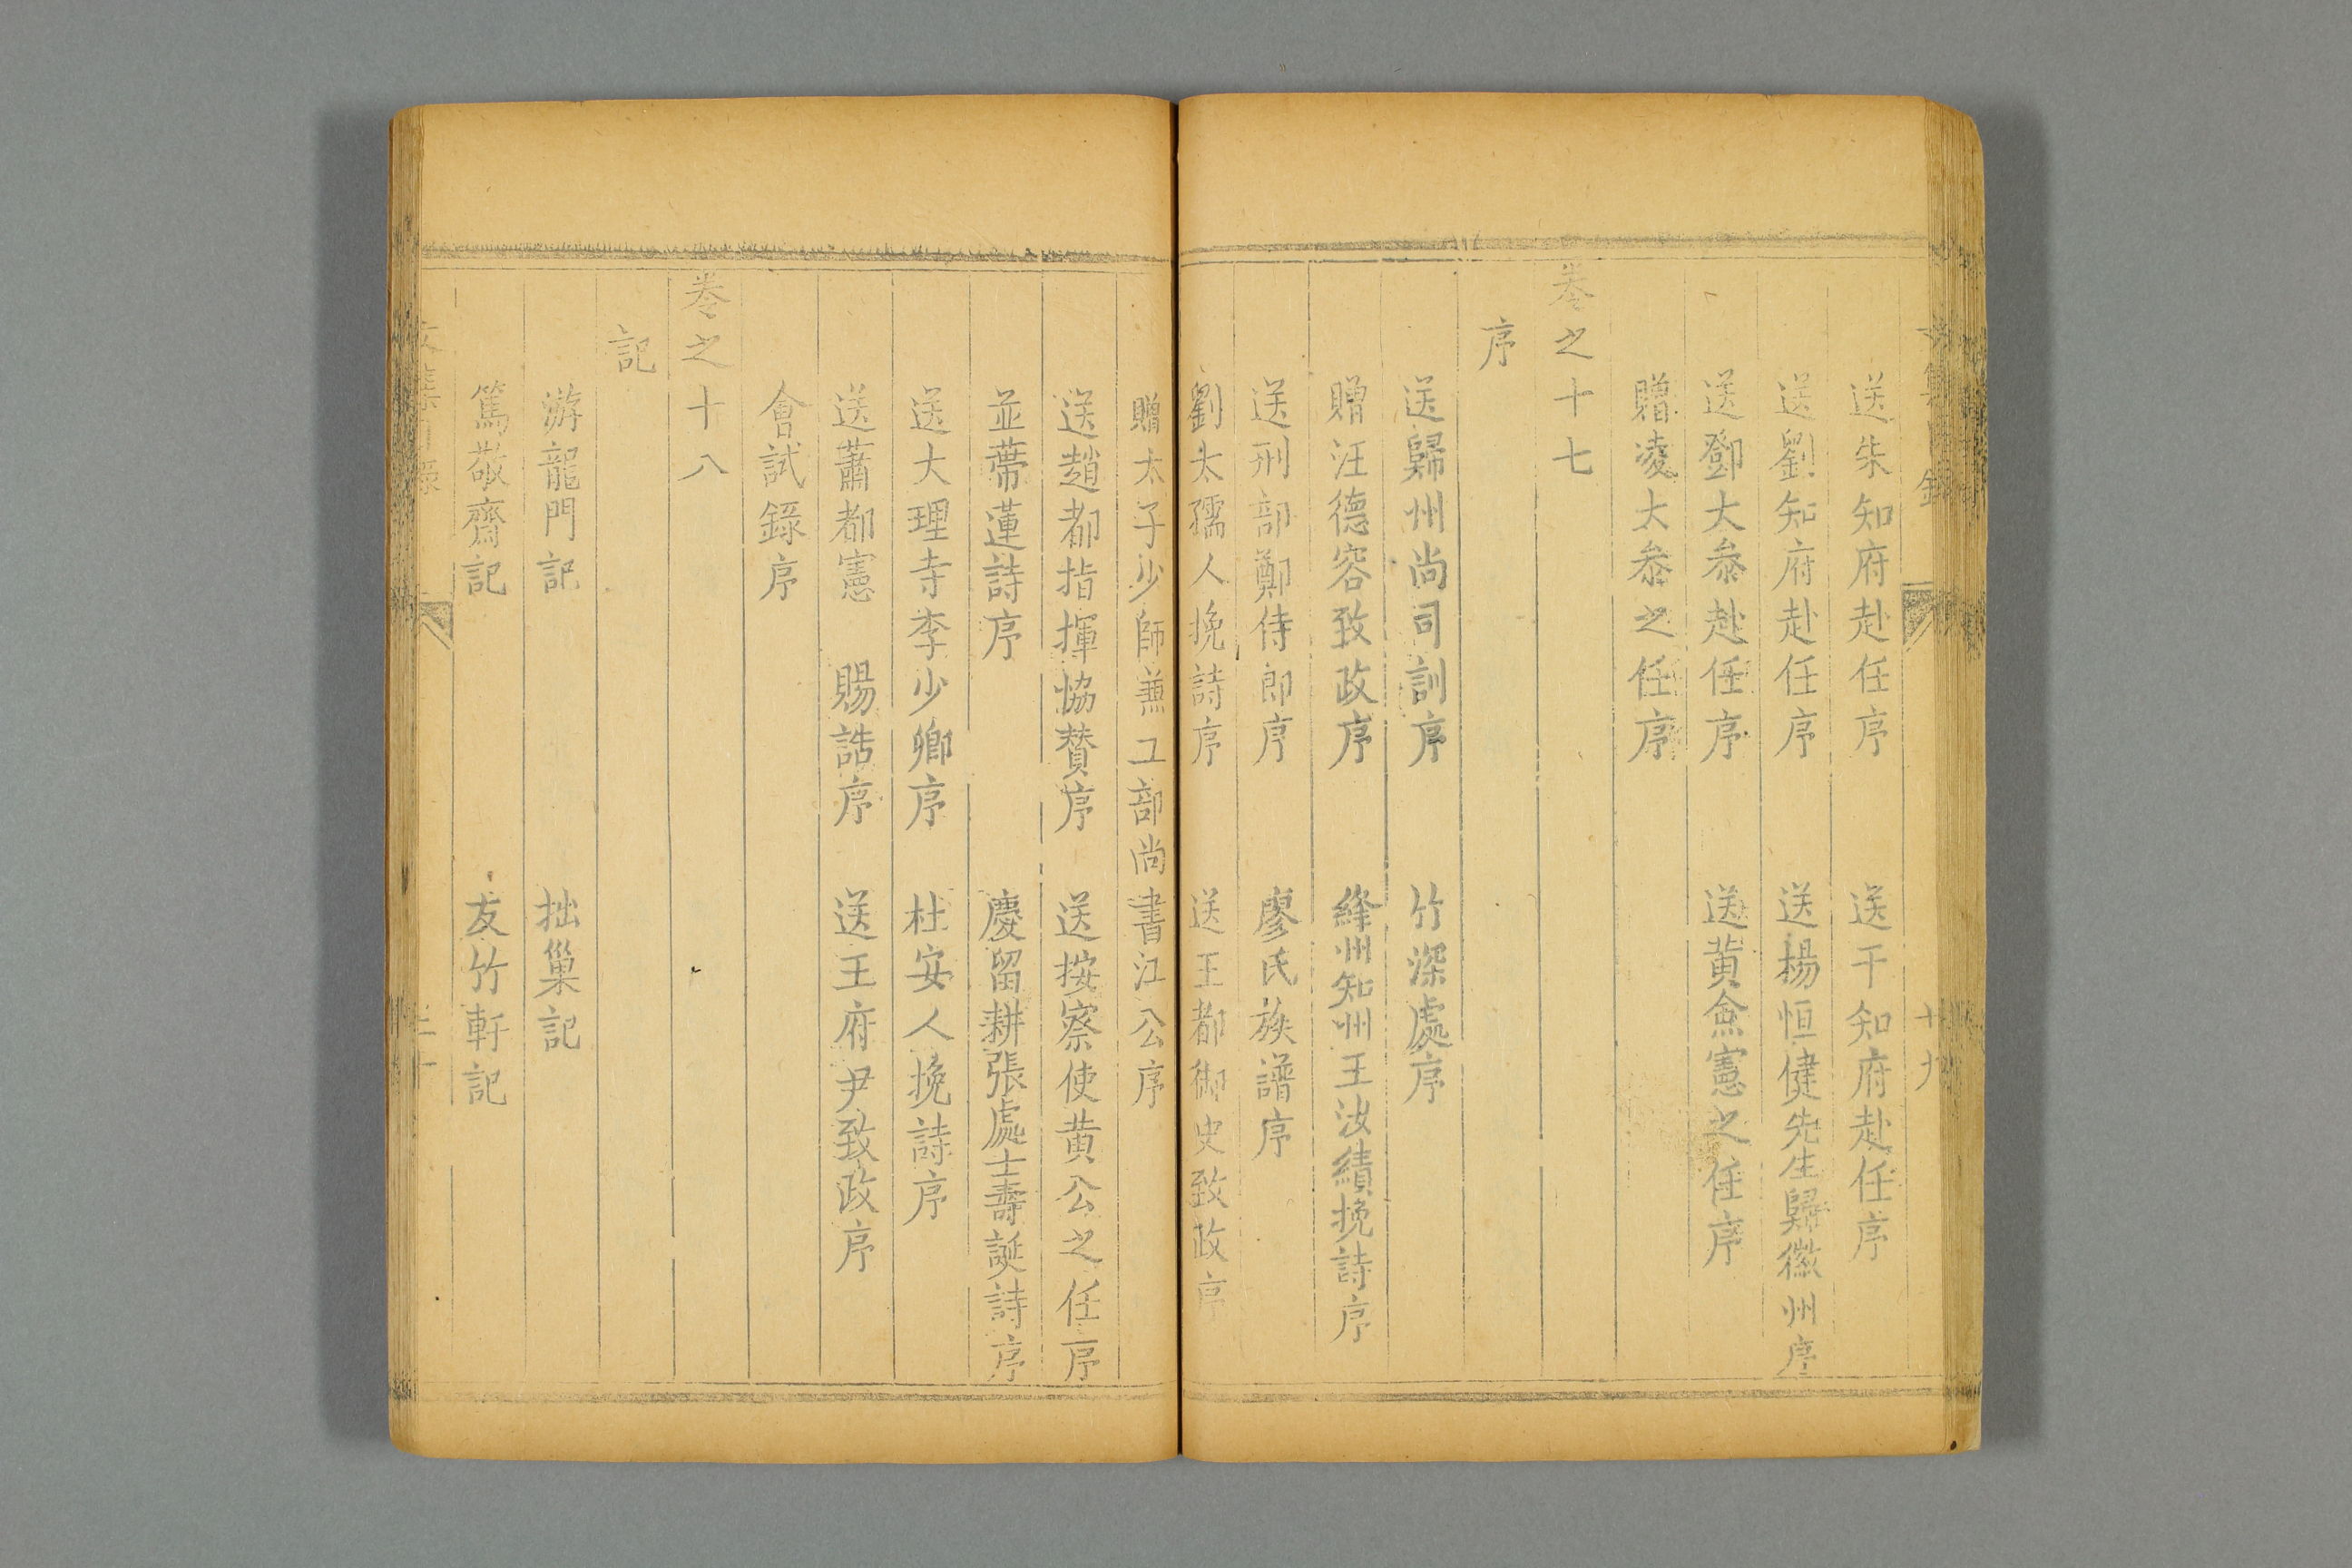 文集目錄 十九
送朱知府赴任序 送于知府赴任序
送劉知府赴任序 送楊恒健先生歸徽州序
送鄧大叅赴任序 送黄僉憲之任序
贈凌大叅之任序
卷之十七
序
送歸州尚司訓序 竹深處序
贈汪德容致政序 絳州知州王汝績挽詩序
送刑部鄭侍郎序 廖氏族譜序
劉太孺人挽詩序 送王都御史致政序
贈太子少師兼工部尚書江公序
送趙都指揮恊賛序 送按察使黄公之任序
並蔕蓮詩序 慶留耕張處士壽誕詩序
送大理寺李少卿序 杜安人挽詩序
送蕭都憲 賜誥序 送王府尹致政序
會試錄序
卷之十八
記
游龍門記 拙巢記
篤敬齋記 友竹軒記
文集目錄